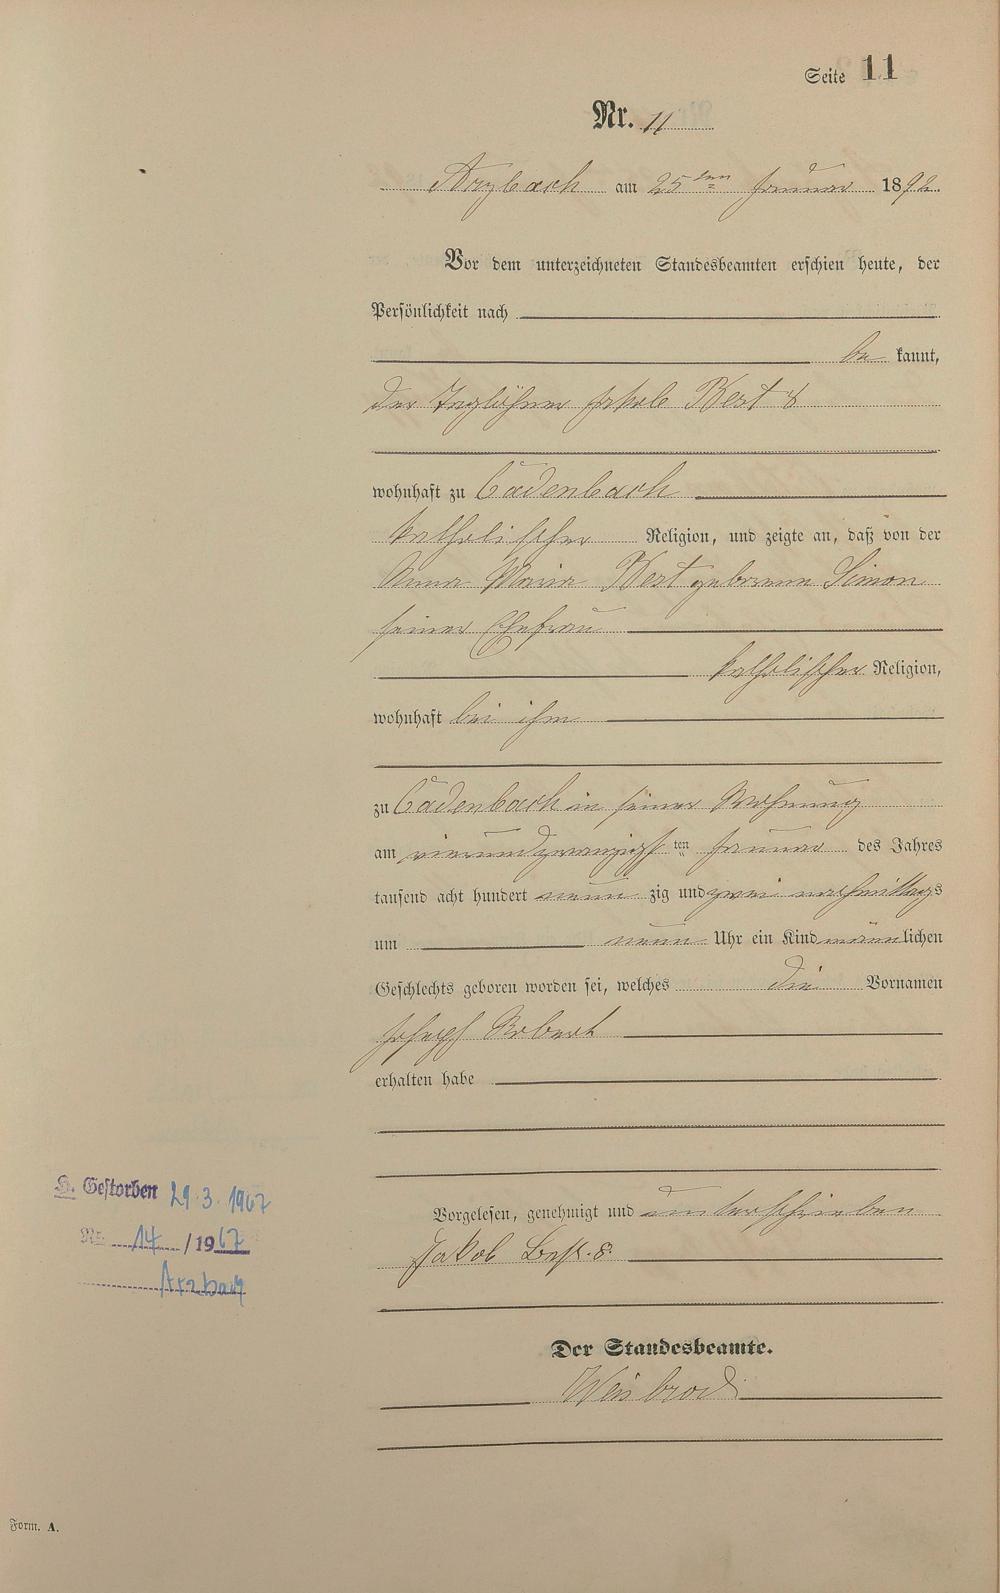 Seite 11
Nr. 11
Arzbach am 25ten Januar 1892.
Vor dem unterzeichneten Standesbeamten erschien heute, der
Persönlichkeit nach
be kannt,
der Taglöhner Jakob Best 8
wohnhaft zu Cadenbach
katholischer Religion, und zeigte an, daß von der
Anna Maria Best geborenen Simon
seiner Ehefrau
katholischer Religion,
wohnhaft bei ihm
zu Cadenbach in seiner Wohnung
am vierundzwanzigsten Januar des Jahres
tausend acht hundert neun zig und zwei nachmittags
um neun Uhr ein Kind männlichen
Geschlechts geboren worden sei, welches die Vornamen
Joseph Robert
erhalten habe
Vorgelesen, genehmigt und unterschrieben
Jakob Best. 8.
Der Standesbeamte.
Weisbrod
Gestorben 29.3.1967
Nr. 14 /1967
Arzbach
Form. A.